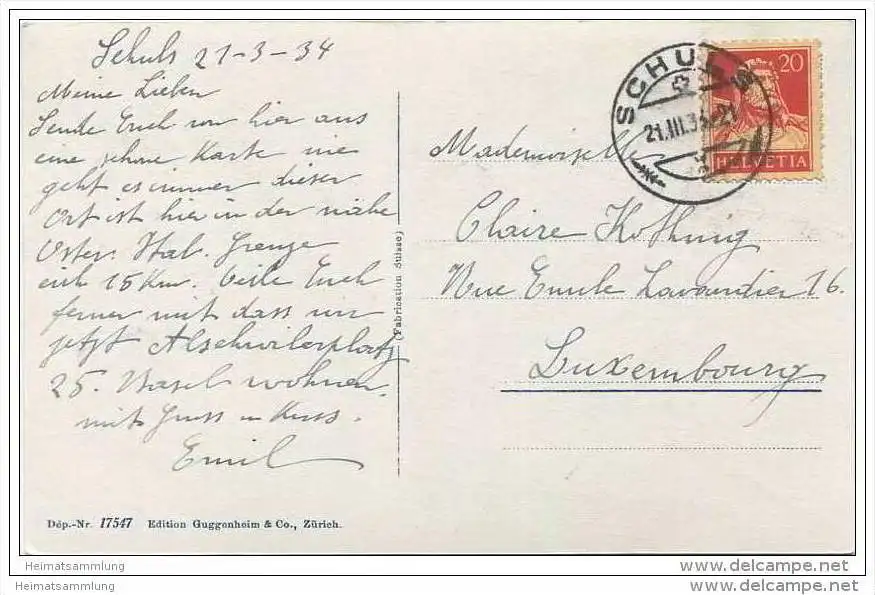 Schuls 21-3-34
Meine Lieben
Sende Euch von hier aus
eine schöne Karte wie
geht es immer dieser
Ort ist hier in der nähe
Oster. Ital. Grenze
15 Km. Teile Euch
ferner mit dass wir
jetzt Alschwilerplatz
25. Basel wohnen.
mit Gruss u Kuss.
Emil
Dép.-Nr. 17547 Edition Guggenheim & Co., Zürich.
(Fabrication Suisse)
SCHULS
21.III.34-21
20
HELVETIA
Mademoiselle
Claire
Rue Emile Lavandier 16.
Luxembourg
Heimatsammlung
Heimatsammlung
delcampe.net
delcampe.net